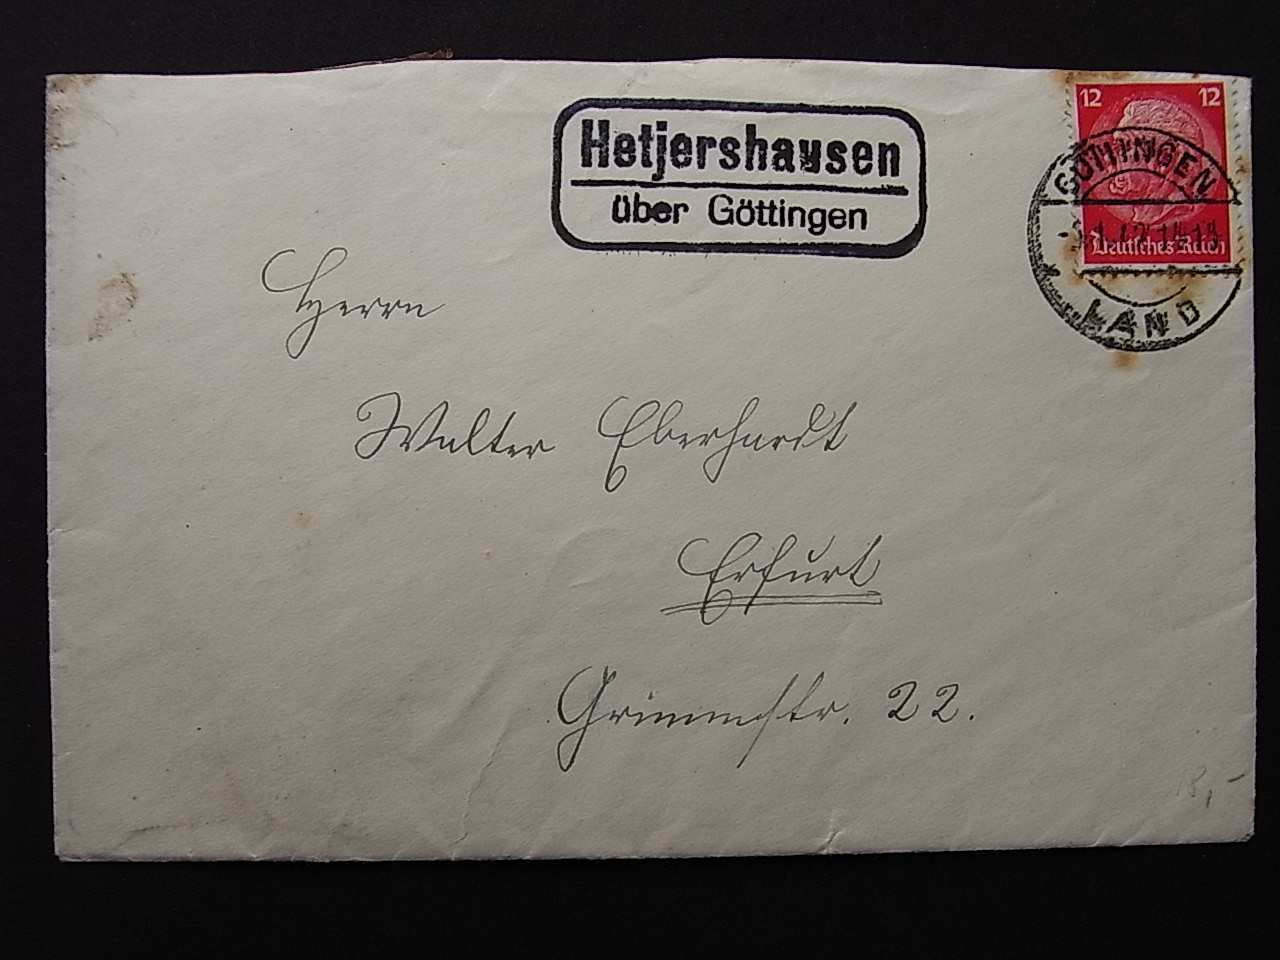 Hetjershausen
über Göttingen
12 12
Deutsches Reich
GÖTTINGEN
LAND
Herrn
Walter Eberhardt
Erfurt
Grimmstr. 22.
18,-